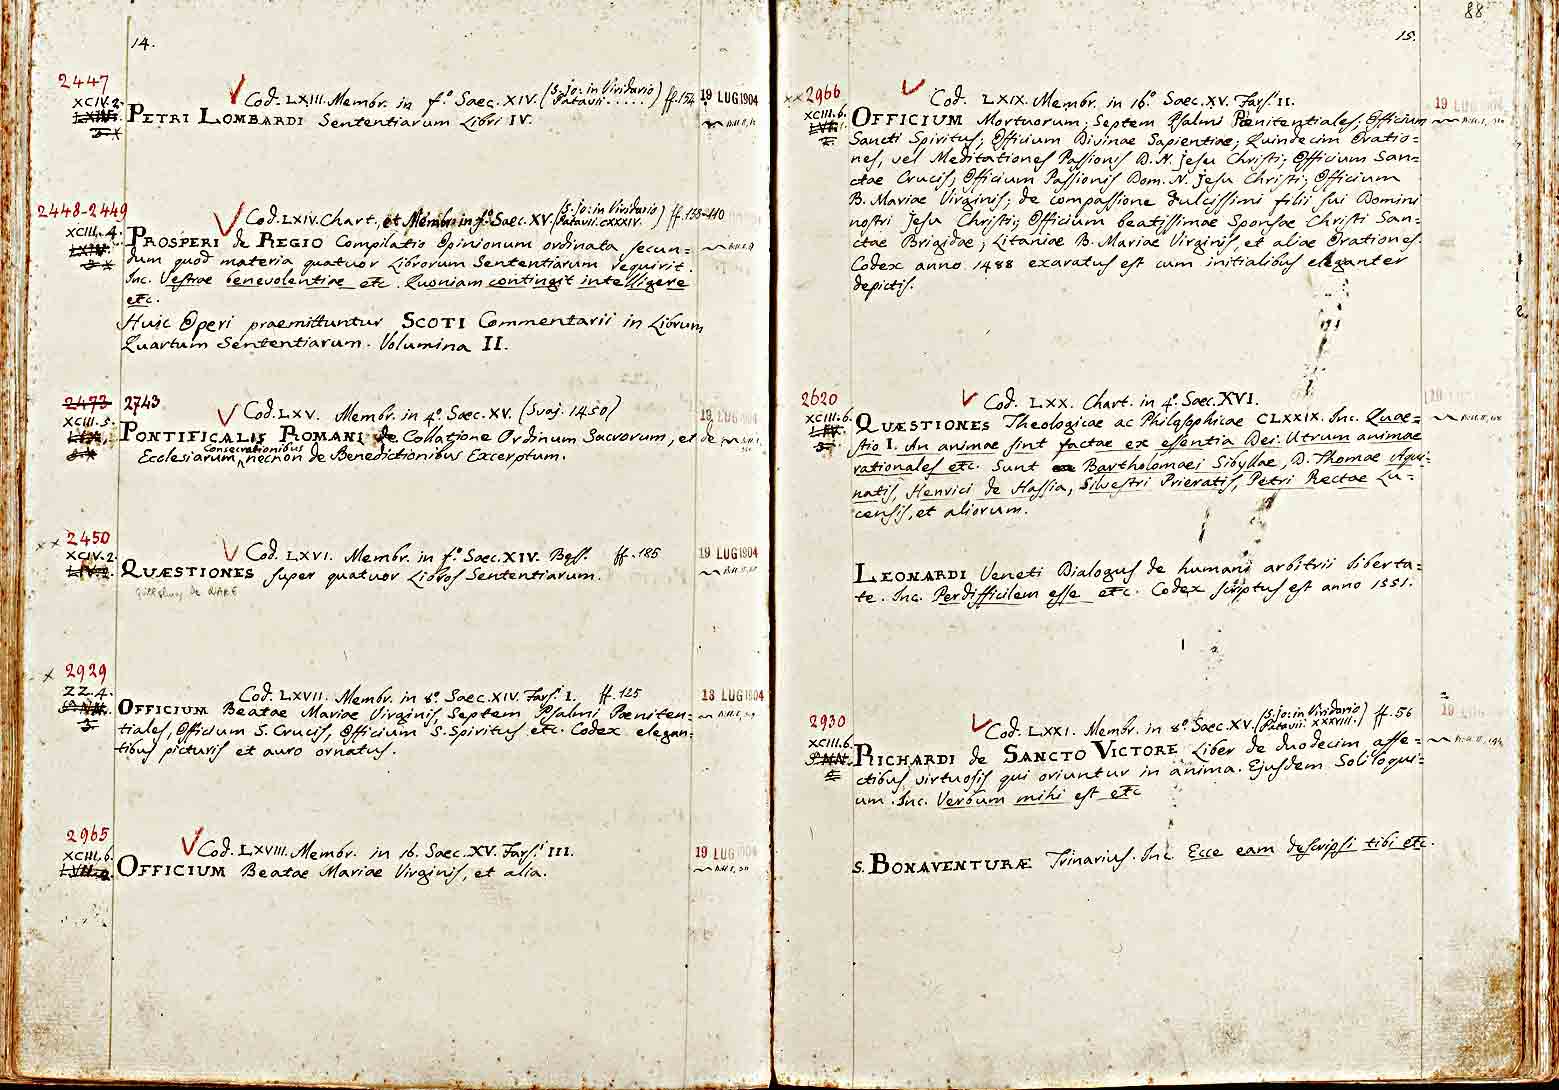 14.
2447
XCIV.2.
LXIII.
Cod. LXIII. Membr. in f.º Saec. XIV. (S. Jo: in Viridario Patavii.....) ff. 154
19 LUG 1904
PETRI LOMBARDI Sententiarum Libri IV.
2448-2449
XCIII.4.
LXIV.
Cod. LXIV. Chart. et Membr. in f.º Saec. XV. (S. Jo: in Viridario Patavii. CXXXIV.) ff. 158-110
PROSPERI de REGIO Compilatio Opinionum ordinata secun=
dum quod materia quatuor Librorum Sententiarum requirit.
Inc. Vestrae benevolentiae etc. Quoniam contingit intelligere
etc.
Huic Operi praemittuntur SCOTI Commentarii in Librum
Quartum Sententiarum. Volumina II.
2473 2743
XCIII.5.
Cod. LXV. Membr. in 4º Saec. XV. (Suaj. 1450)
19 LUG 1904
PONTIFICALIS ROMANI de Collatione Ordinum Sacrorum, et de
Consecrationibus
Ecclesiarum, necnon de Benedictionibus Excerptum.
2450
XCIV.2.
Cod. LXVI. Membr. in f.º Saec. XIV. Bess. ff. 185
19 LUG 1904
QUÆSTIONES super quatuor Libros Sententiarum.
de WARE
2929
ZZ.4.
Cod. LXVII. Membr. in 8º Saec. XIV. Fars. I. ff. 125
13 LUG 1904
OFFICIUM Beatae Mariae Virginis, Septem Psalmi Pœniten=
tiales, Officium S. Crucis, Officium S. Spiritus etc. Codex elegan=
tibus picturis et auro ornatus.
2965
XCIII.6.
Cod. LXVIII. Membr. in 16. Saec. XV. Fars. III.
19 LUG 1904
OFFICIUM Beatae Mariae Virginis, et alia.
88
15.
2966
XCIII.6.
Cod. LXIX. Membr. in 16º Saec. XV. Fars. II.
19 LUG
OFFICIUM Mortuorum; Septem Psalmi Pœnitentiales; Officium
Sancti Spiritus; Officium Divinae Sapientiae; Quindecim Oratio=
nes, vel Meditationes Passionis D. N. Jesu Christi; Officium San=
ctae Crucis; Officium Passionis Dom. N. Jesu Christi; Officium
B. Mariae Virginis; de compassione dulcissimi filii sui Domini
nostri Jesu Christi; Officium beatissimae Sponsae Christi San=
ctae Brigidae; Litaniae B. Mariae Virginis, et aliae Orationes.
Codex anno 1488 exaratus est cum initialibus eleganter
depictis.
2620
XCIII.6.
Cod. LXX. Chart. in 4º Saec. XVI.
19 LUG
QUÆSTIONES Theologicae ac Philosophicae CLXXIX. Inc. Quae=
stio I. An animae sint factae ex essentia Dei. Utrum animae
rationales etc. Sunt Bartholomaei Sibyllae, D. Thomae Aqui=
natis, Henrici de Hassia, Silvestri Prieratis, Petri Rectae Lu=
censis, et aliorum.
LEONARDI Veneti Dialogus de humani arbitrii liberta=
te. Inc. Perdifficilem esse etc. Codex scriptus est anno 1551.
2930
XCIII.6.
Cod. LXXI. Membr. in 8º Saec. XV. (S. Jo: in Viridario Patavii. XXXVIII.) ff. 56
19 LUG
RICHARDI de SANCTO VICTORE Liber de duodecim affe=
ctibus virtuosis qui oriuntur in anima. Ejusdem Soliloqui=
um. Inc. Verbum mihi est etc
S. BONAVENTURÆ Trinarius. Inc. Ecce eam descripsi tibi etc.